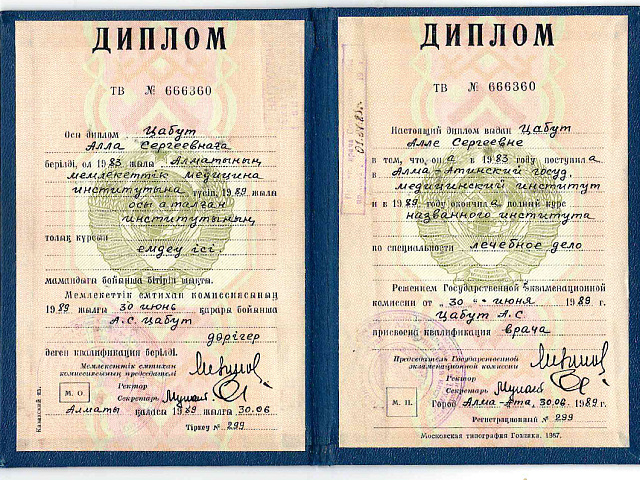 ДИПЛОМ
ТВ № 666360
Осы диплом Цабут
Алла Сергеевнаға
берілді, ол 1983 жылы Алматының
мемлекеттік медицина
институтына түсіп, 1989 жылы
осы аталған
институтының
толық курсын
емдеу ісі
мамандығы бойынша бітіріп шықты.
Мемлекеттік емтихан комиссиясының
1989 жылғы 30 июнь қарары бойынша
А.С. Цабут
дәрігер
деген квалификация берілді.
Мемлекеттік емтихан
комиссиясының председателі
Ректор
Секретарь
М. О.
Алматы қаласы 1989 жылғы 30.06
Тіркеу № 299
Казахский яз.
ДИПЛОМ
ТВ № 666360
Настоящий диплом выдан Цабут
Алле Сергеевне
в том, что она в 1983 году поступила
в Алма-Атинский госуд.
медицинский институт
и в 1989 году окончила полный курс
названного института
по специальности лечебное дело
Решением Государственной экзаменационной
комиссии от „30" июня 1989 г.
Цабут А.С.
присвоена квалификация врача
Председатель Государственной
экзаменационной комиссии
Ректор
Секретарь
М. П.
Город Алма-Ата, 30.06. 1989 г.
Регистрационный № 299
Московская типография Гознака. 1987.